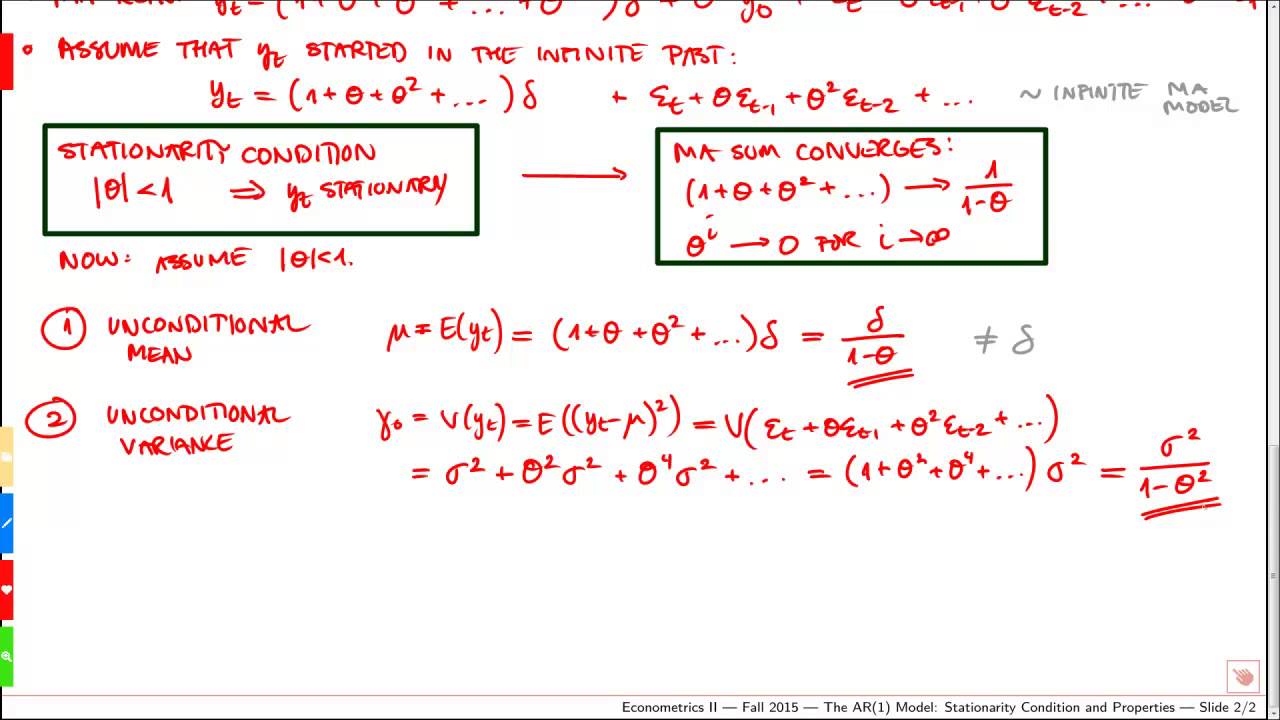 • ASSUME THAT yₜ STARTED IN THE INFINITE PAST:
yₜ = (1+θ+θ²+...)δ + εₜ+θεₜ₋₁+θ²εₜ₋₂+... ~ INFINITE MA MODEL
STATIONARITY CONDITION
|θ|<1 ⇒ yₜ STATIONARY
→
MA SUM CONVERGES:
(1+θ+θ²+...) → 1/(1-θ)
θⁱ → 0 FOR i→∞
NOW: ASSUME |θ|<1.
① UNCONDITIONAL MEAN
μ = E(yₜ) = (1+θ+θ²+...)δ = δ/(1-θ) ≠ δ
② UNCONDITIONAL VARIANCE
γ₀ = V(yₜ) = E((yₜ-μ)²) = V(εₜ+θεₜ₋₁+θ²εₜ₋₂+...)
= σ²+θ²σ²+θ⁴σ²+... = (1+θ²+θ⁴+...)σ² = σ²/(1-θ²)
Econometrics II — Fall 2015 — The AR(1) Model: Stationarity Condition and Properties — Slide 2/2